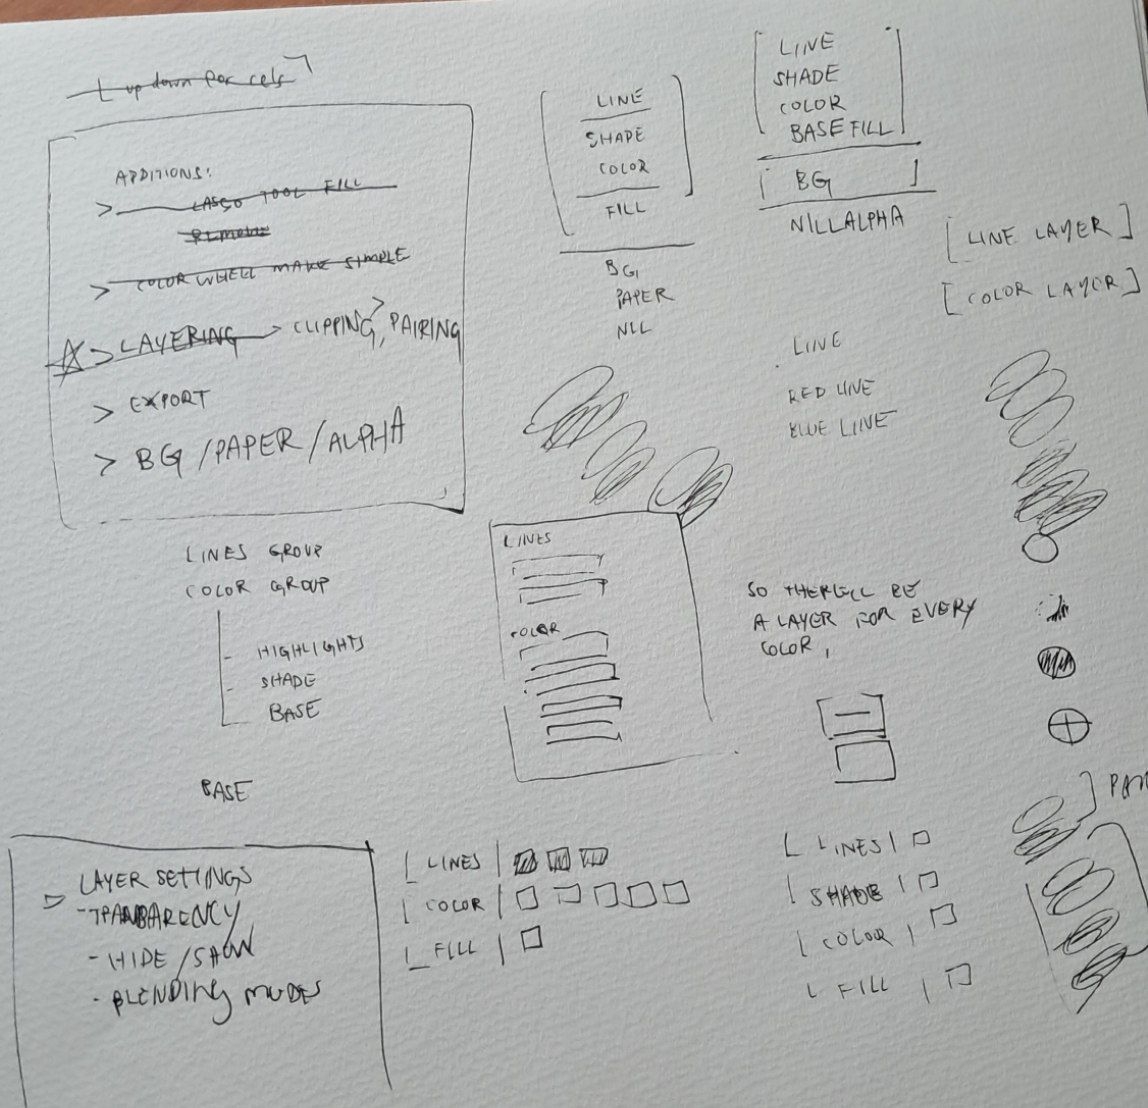 [up down for cels]
ADDITIONS:
> LASSO TOOL FILL
> COLOR WHELL MAKE SIMPLE
> LAYERING > CLIPPING, PAIRING
> EXPORT
> BG /PAPER /ALPHA
LINE
SHADE
COLOR
FILL
BG,
PAPER
NILL
LINE
SHADE
COLOR
BASE FILL
BG
NILLALPHA
[LINE LAYER]
[COLOR LAYER]
LINE
RED LINE
BLUE LINE
LINES GROUP
COLOR GROUP
- HIGHLIGHTS
- SHADE
BASE
BASE
LINES
COLOR
SO THERE'LL BE
A LAYER FOR EVERY
COLOR,
LAYER SETTINGS
- HIDE /SHOW
- BLENDING MODES
LINES |
COLOR |
FILL |
LINES |
SHADE |
COLOR |
FILL |